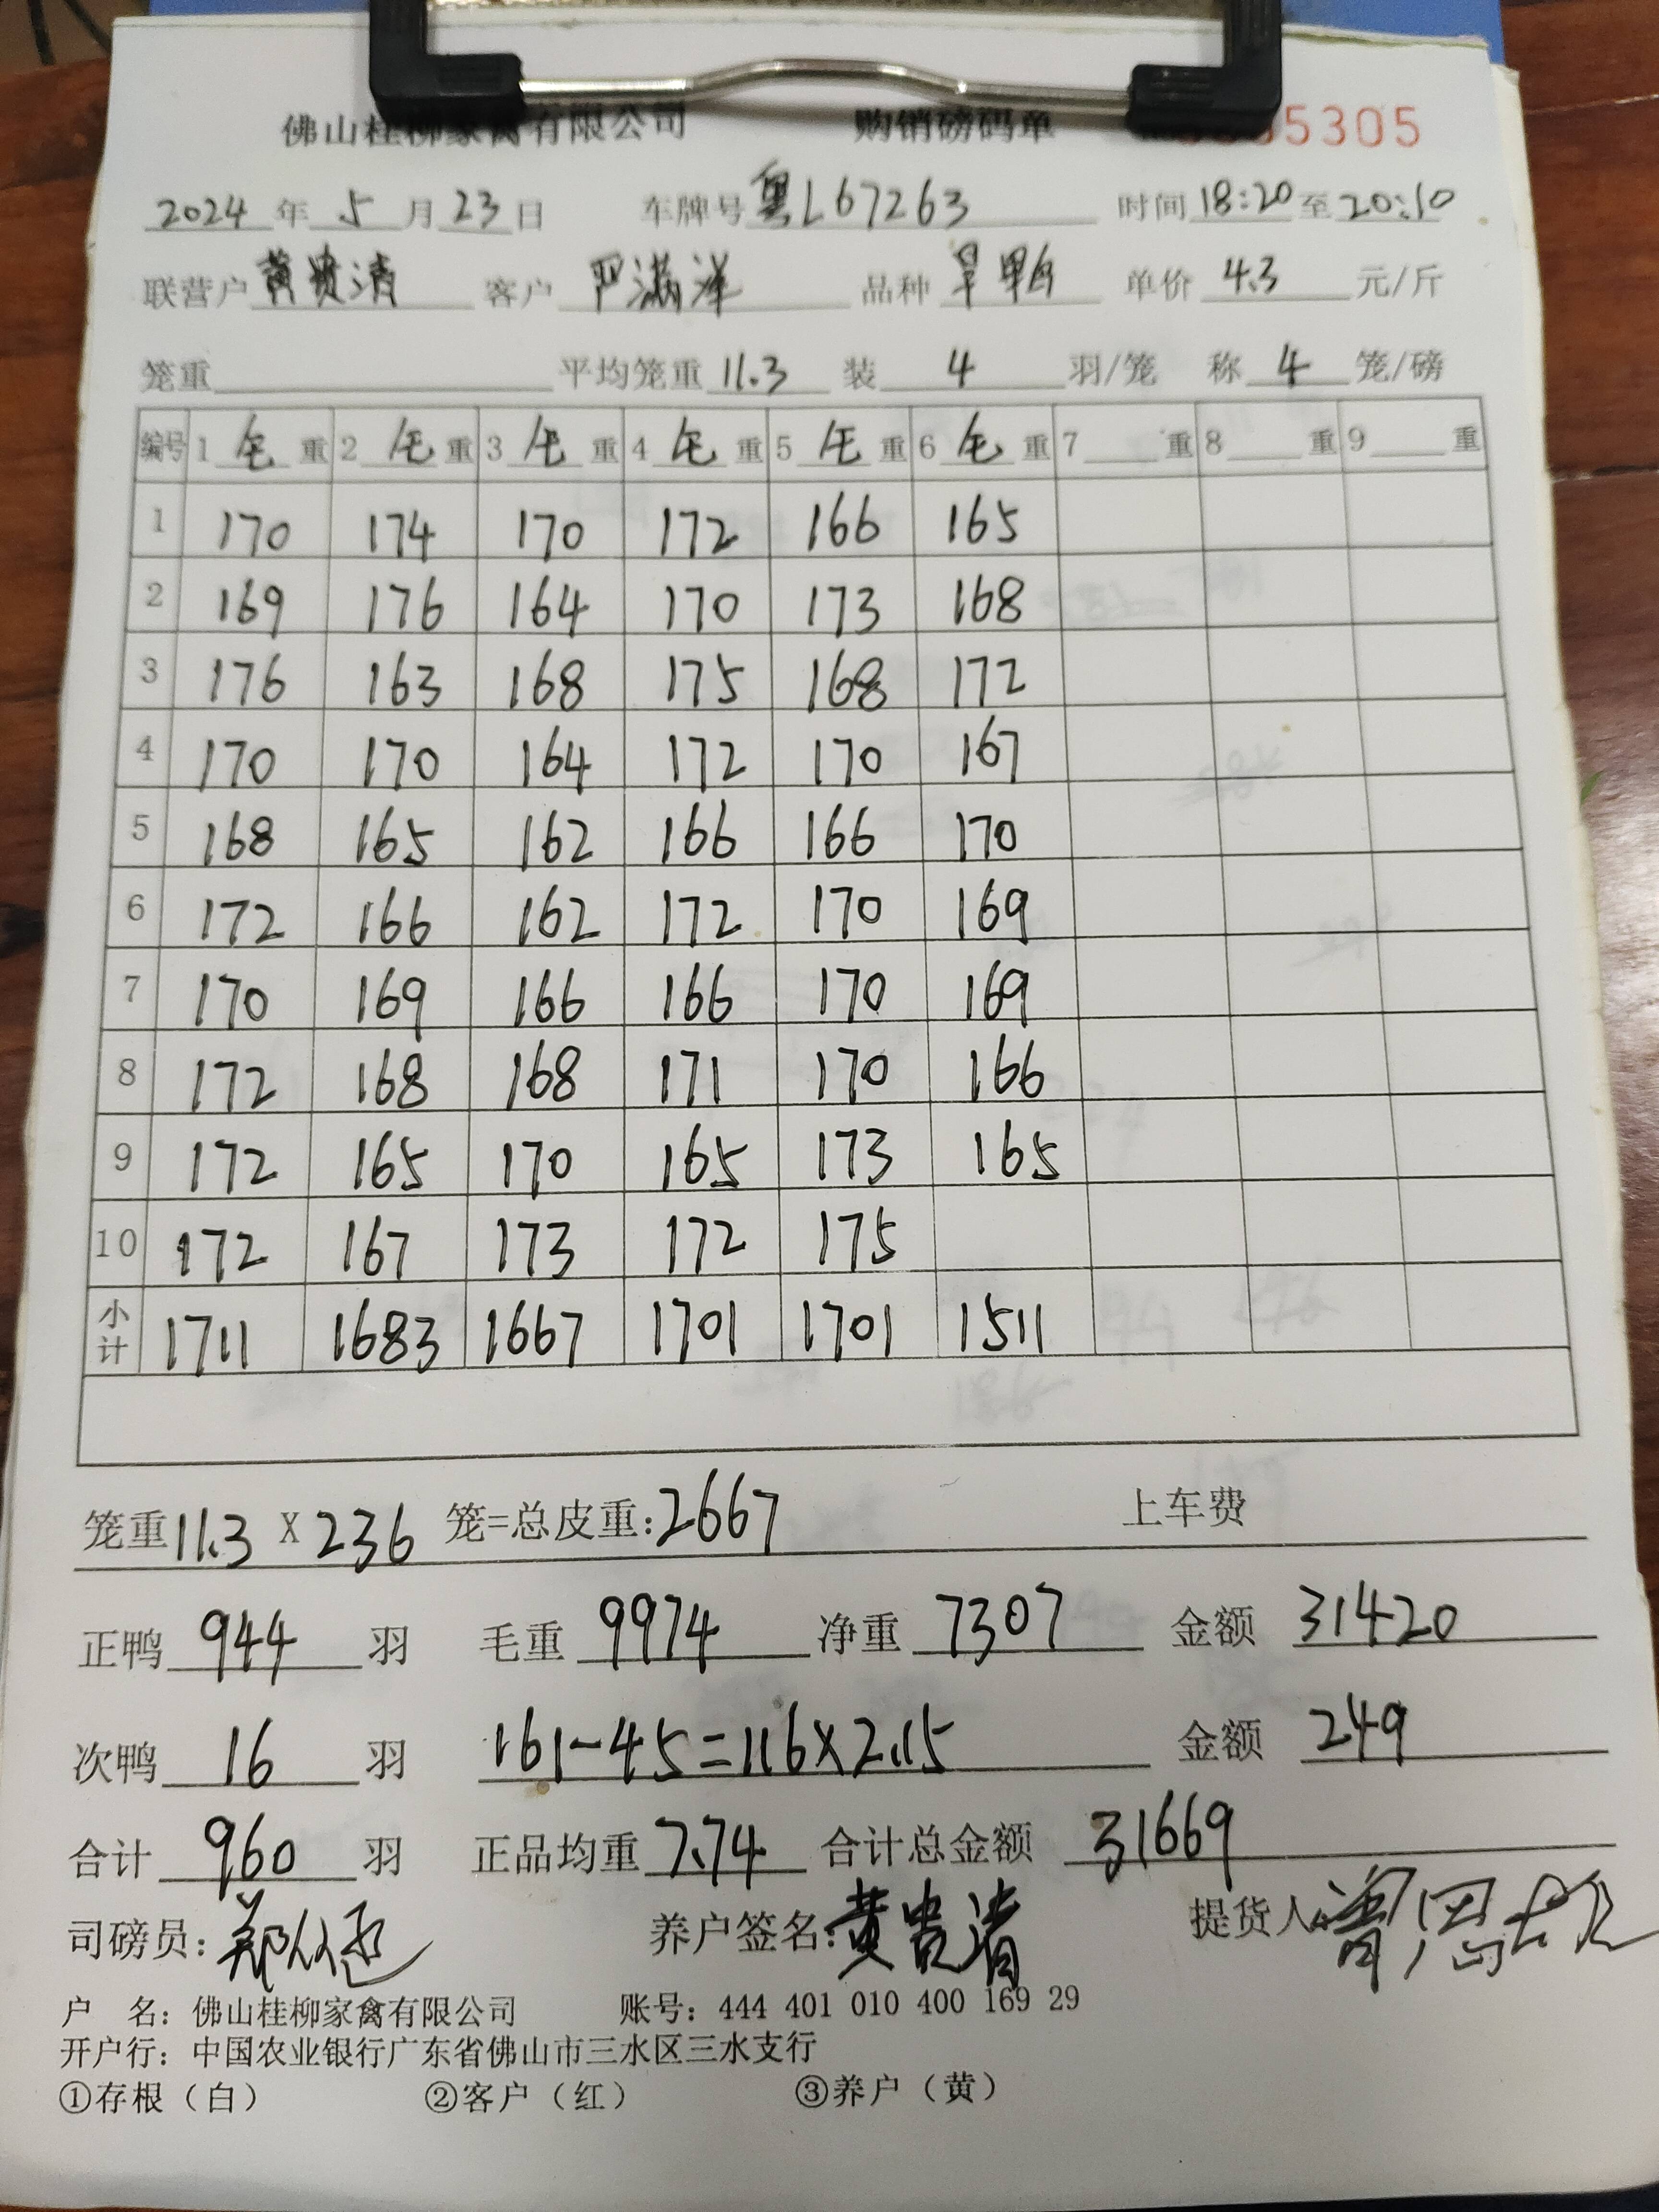 佛山桂柳家禽有限公司 购销磅码单 5305
2024 年 5 月 23 日 车牌号 粤L67263 时间 18:20 至 20:10
联营户 黄贵清 客户 严满洋 品种 旱鸭 单价 4.3 元/斤
笼重 平均笼重 11.3 装 4 羽/笼 称 4 笼/磅
编号 1 毛 重 2 毛 重 3 毛 重 4 毛 重 5 毛 重 6 毛 重 7 重 8 重 9 重
1 170 174 170 172 166 165
2 169 176 164 170 173 168
3 176 163 168 175 168 172
4 170 170 164 172 170 167
5 168 165 162 166 166 170
6 172 166 162 172 170 169
7 170 169 166 166 170 169
8 172 168 168 171 170 166
9 172 165 170 165 173 165
10 172 167 173 172 175
小计 1711 1683 1667 1701 1701 1511
笼重 11.3 X 236 笼=总皮重: 2667 上车费
正鸭 944 羽 毛重 9974 净重 7307 金额 31420
次鸭 16 羽 161-45=116×2.15 金额 249
合计 960 羽 正品均重 7.74 合计总金额 31669
司磅员: 养户签名: 黄贵清 提货人
户 名: 佛山桂柳家禽有限公司 账号: 444 401 010 400 169 29
开户行: 中国农业银行广东省佛山市三水区三水支行
①存根（白） ②客户（红） ③养户（黄）